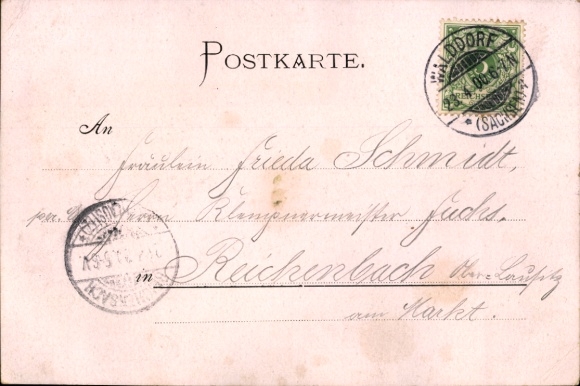 POSTKARTE.
WALDDORF
(SACHSEN)
An
Fräulein Frieda Schmidt,
Herrn Klempnermeister Fuchs.
in Reichenbach Ober-Lausitz
am Markt.